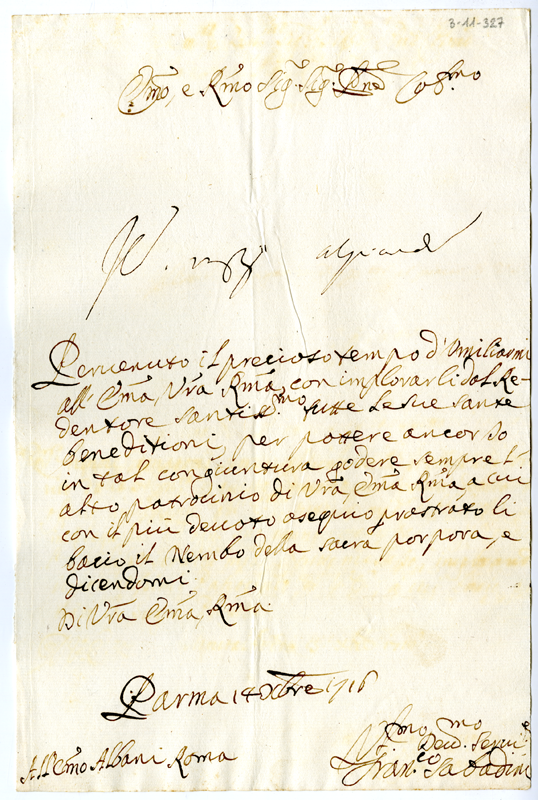 3-11-327
Emo, e Rmo Sig.r Sig.r Pne Colmo
Peruenuto il precioso tempo d'Umiliarmi
all' Emā, Vrā Rmā, con implorarli dal Re-
dentore santis.mo tutte le sue sante
beneditioni per potere ancor Io
in tal congiuntura godere sempre l'
alto patrocinio di Vrā, Emā Rmā, a cui
con il più deuoto osequio prostrato li
bacio il Nembo della sacra porpora, e
dicendomi
Di Vrā Emā, Rmā
Parma 14 Xbre 1716
All' Emo Albani Roma
mo mo
Deu. Serui.e
Fran.co Sabadini